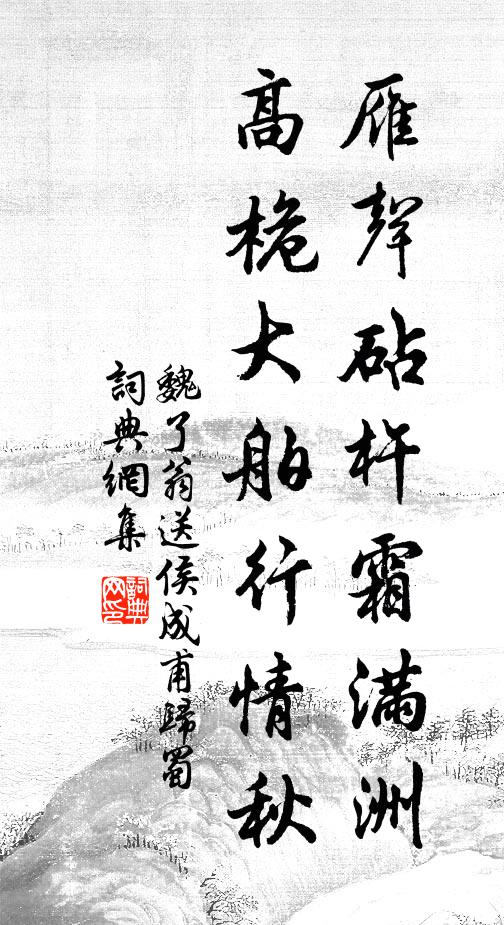 雁聲砧杵霜滿洲
高桅大舶行情秋
魏了翁送侯成甫歸蜀
詞典網集
詞典網印